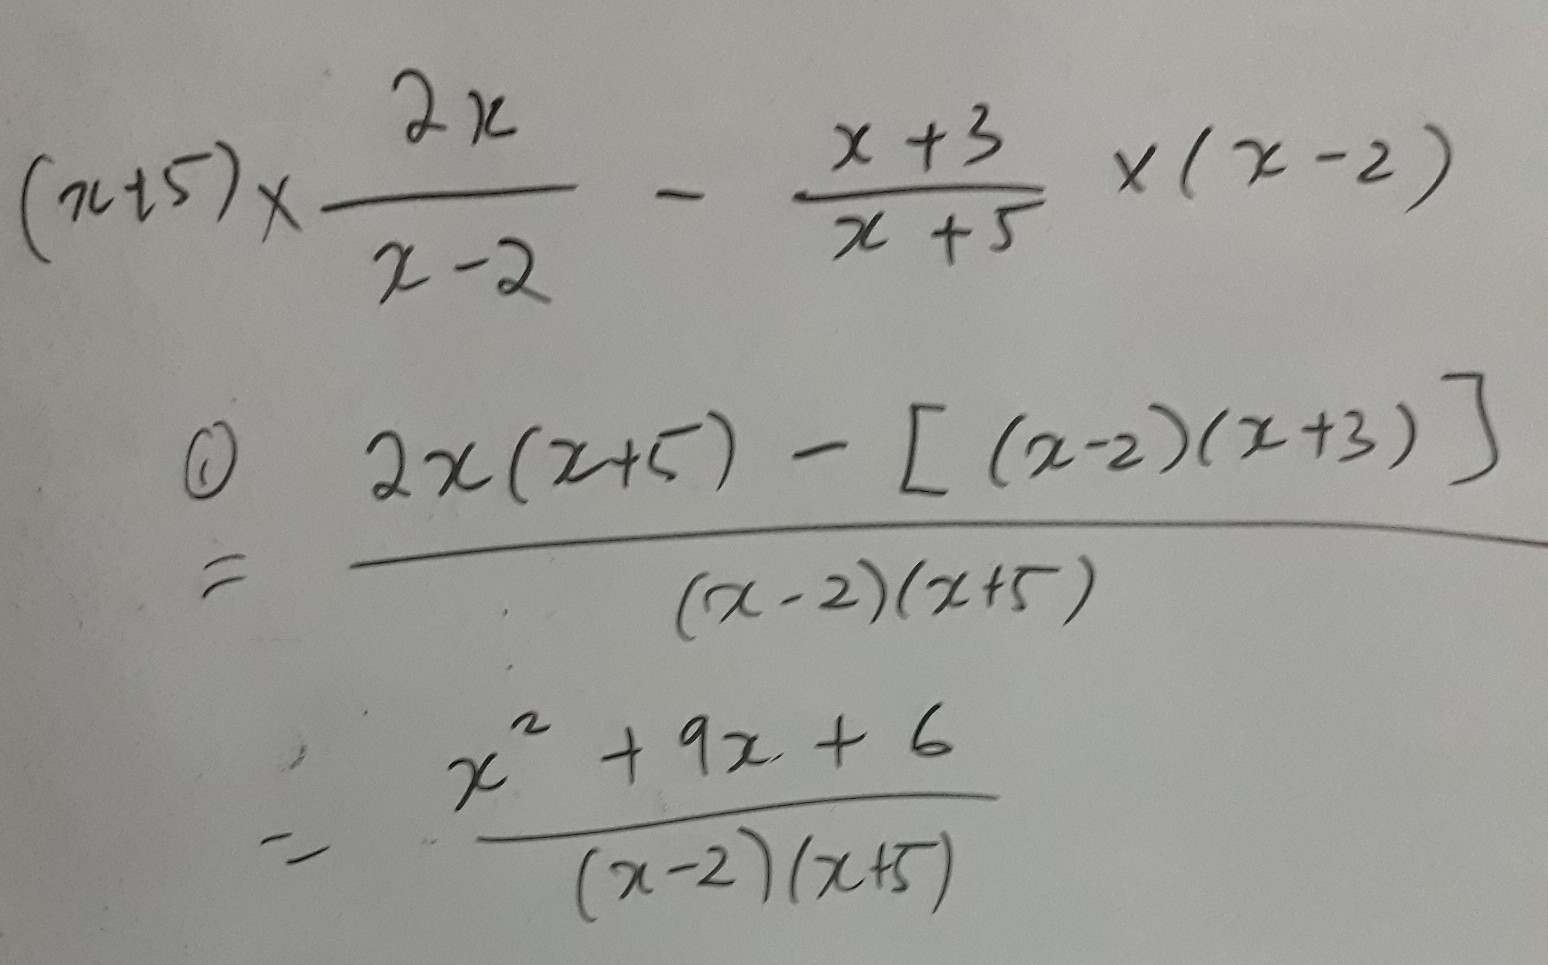 (x+5) × 2x/(x-2) - (x+3)/(x+5) × (x-2)
① = (2x(x+5) - [(x-2)(x+3)])/((x-2)(x+5))
= (x² + 9x + 6)/((x-2)(x+5))